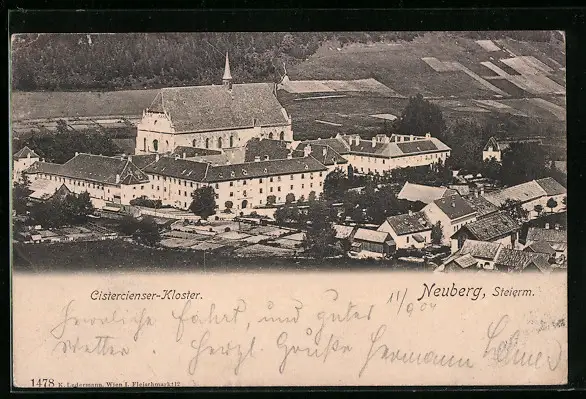 Cistercienser-Kloster.
Neuberg, Steierm.
11/9 04
Herrliche Fahrt, und gutes
Wetter Herzl. Grüße Hermann
1478 K. Ledermann, Wien I. Fleischmarkt 12